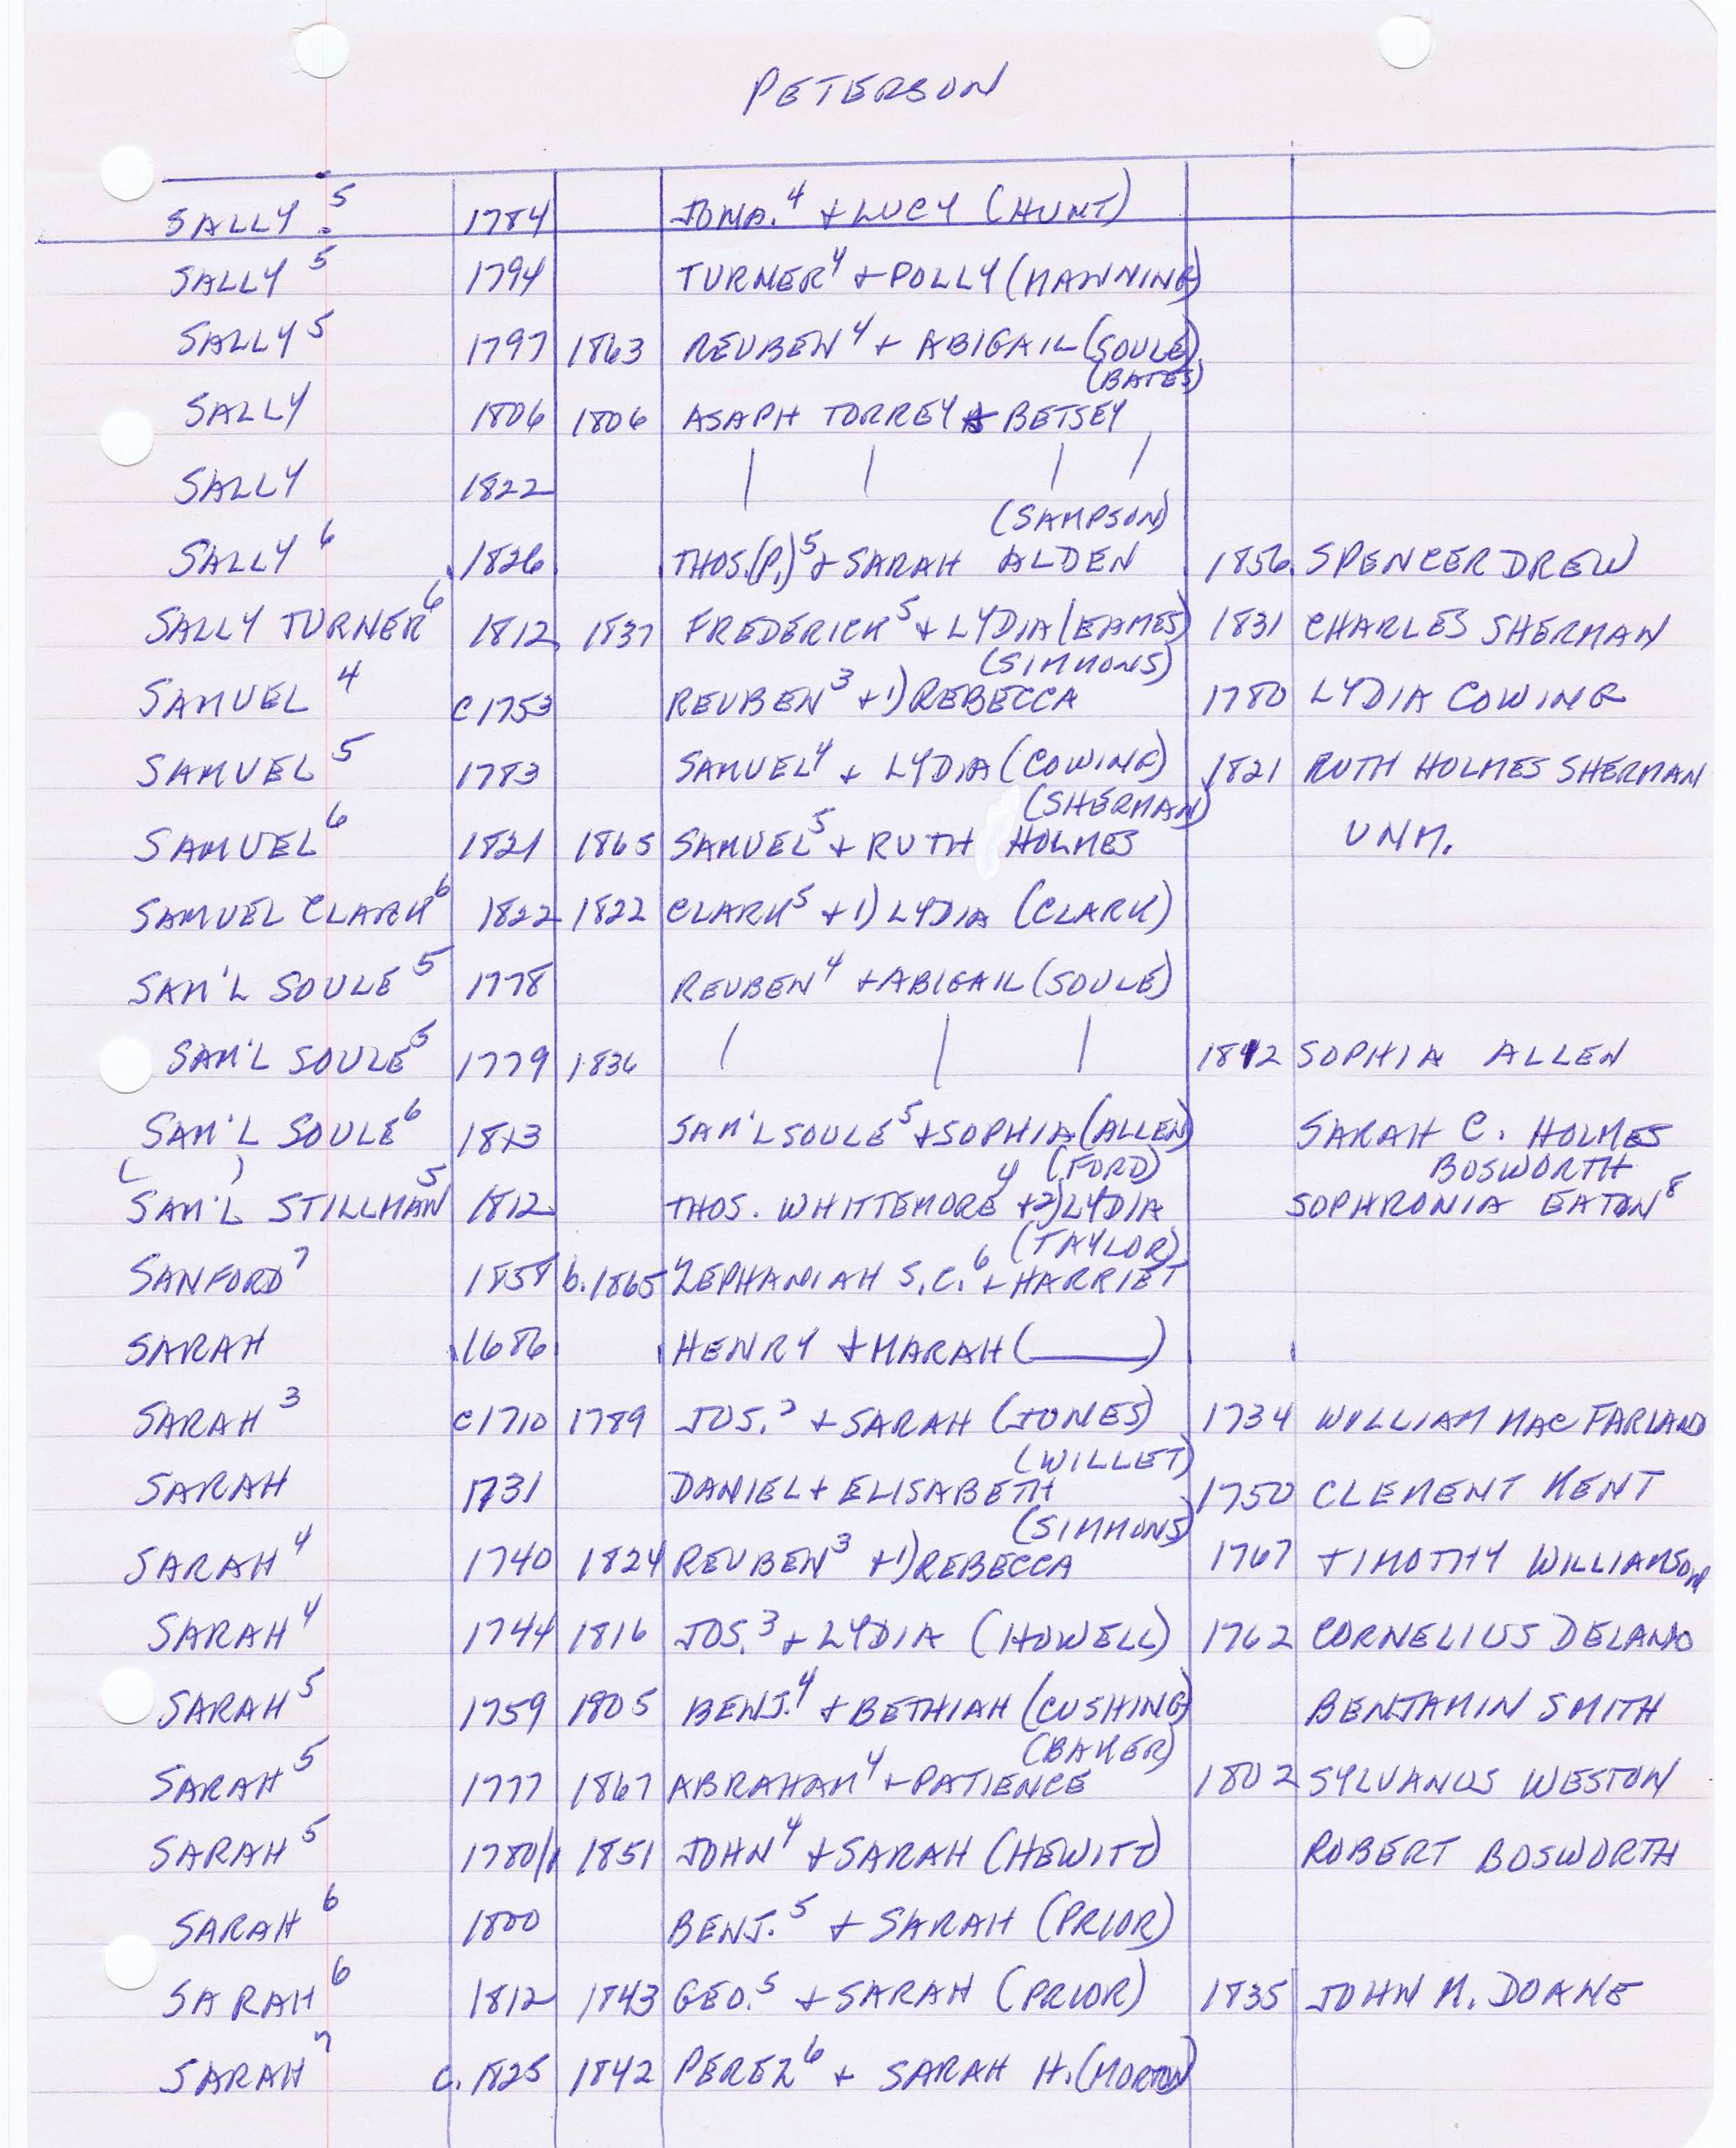 PETERSON
SALLY 5 1784 JONA. 4 + LUCY (HUNT)
SALLY 5 1794 TURNER 4 + POLLY (MANNING)
SALLY 5 1797 1863 REUBEN 4 + ABIGAIL (SOULE)
(BATES)
SALLY 1806 1806 ASAPH TORREY & BETSEY
SALLY 1822 | | | |
(SAMPSON)
SALLY 6 1826 THOS.(P.) 5 + SARAH ALDEN 1856 SPENCER DREW
SALLY TURNER 6 1812 1837 FREDERICK 5 + LYDIA (EAMES) 1831 CHARLES SHERMAN
(SIMMONS)
SAMUEL 4 c1753 REUBEN 3 +1) REBECCA 1780 LYDIA COWING
SAMUEL 5 1783 SAMUEL 4 + LYDIA (COWING) 1821 RUTH HOLMES SHERMAN
(SHERMAN)
SAMUEL 6 1821 1865 SAMUEL 5 + RUTH HOLMES UNM.
SAMUEL CLARK 6 1822 1822 CLARK 5 +1) LYDIA (CLARK)
SAM'L SOULE 5 1778 REUBEN 4 + ABIGAIL (SOULE)
SAM'L SOULE 5 1779 1836 | | | 1812 SOPHIA ALLEN
SAM'L SOULE 6 1813 SAM'L SOULE 5 + SOPHIA (ALLEN) SARAH C. HOLMES
( ) (FORD) BOSWORTH
SAM'L STILLMAN 5 1812 THOS. WHITTEMORE 4 +2) LYDIA SOPHRONIA EATON 8
(TAYLOR)
SANFORD 7 1858 b.1865 ZEPHANIAH S.C. 6 + HARRIET
SARAH 1686 HENRY + MARAH (______)
SARAH 3 c1710 1789 JOS. 2 + SARAH (JONES) 1734 WILLIAM MACFARLAND
(WILLET)
SARAH 1731 DANIEL + ELISABETH 1750 CLEMENT KENT
(SIMMONS)
SARAH 4 1740 1824 REUBEN 3 +1) REBECCA 1767 TIMOTHY WILLIAMSON
SARAH 4 1744 1816 JOS. 3 + LYDIA (HOWELL) 1762 CORNELIUS DELANO
SARAH 5 1759 1805 BENJ. 4 + BETHIAH (CUSHING) BENJAMIN SMITH
(BAKER)
SARAH 5 1777 1867 ABRAHAM 4 + PATIENCE 1802 SYLVANUS WESTON
SARAH 5 1780/1 1851 JOHN 4 + SARAH (HEWITT) ROBERT BOSWORTH
SARAH 6 1800 BENJ. 5 + SARAH (PRIOR)
SARAH 6 1812 1843 GEO. 5 + SARAH (PRIOR) 1835 JOHN M. DOANE
SARAH 7 c.1825 1842 PEREZ 6 + SARAH H. (MORTON)